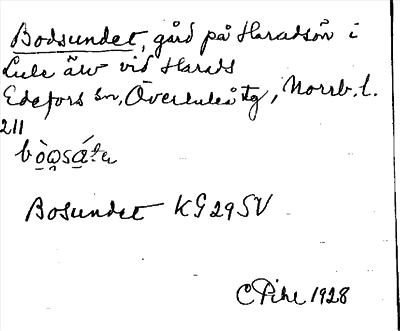 Bodsundet, gård på Haradsön i
Lule älv vid Harads
Edefors sn, Överluleå tg, Norrb. l.
211
Bosundet KG29SV
C Pihl 1928